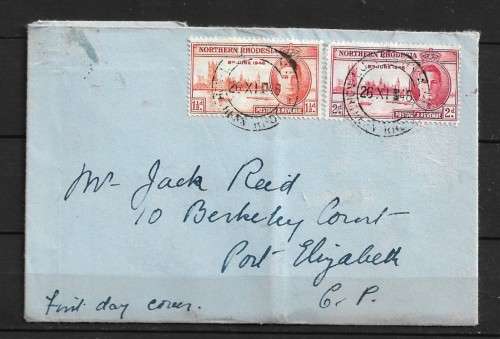 NORTHERN RHODESIA
8TH JUNE 1946
1½d 1½d
POSTAGE & REVENUE
NORTHERN RHODESIA
8TH JUNE 1946
2d 2d
POSTAGE & REVENUE
26 XI 46
26 XI 46
Mr Jack Reid
10 Berkeley Court
Port Elizabeth
C. P.
First day cover.